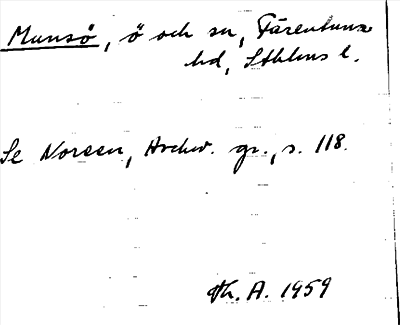 Munsö, ö och sn, Färentuna
hd, Sthlms l.
Se Noreen, Archiv. gr., s. 118.
Th. A. 1959